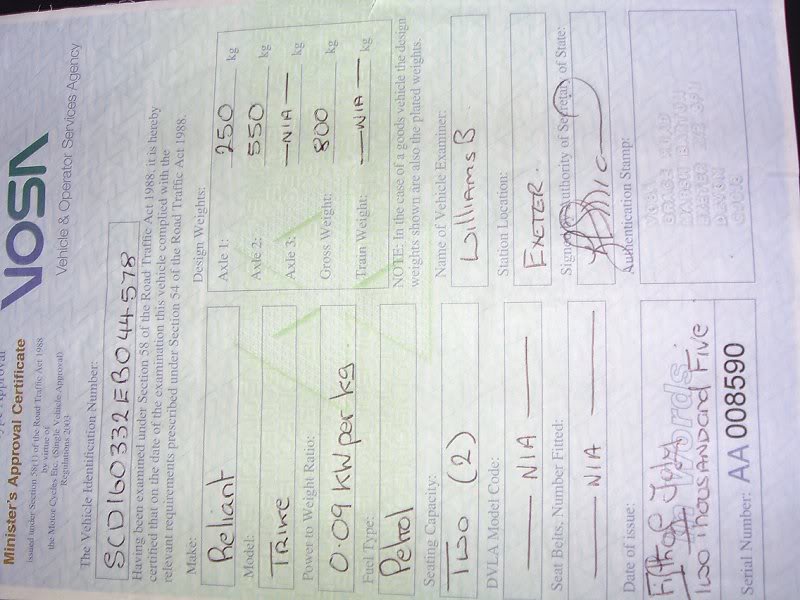 Minister's Approval Certificate
issued under Section 58(1) of the Road Traffic Act 1988
by virtue of
the Motor Cycles Etc. (Single Vehicle Approval)
Regulations 2003
VOSA
Vehicle & Operator Services Agency
The Vehicle Identification Number:
SCD160332EB044578
Having been examined under Section 58 of the Road Traffic Act 1988, it is hereby
certified that on the date of the examination this vehicle complied with the
relevant requirements prescribed under Section 54 of the Road Traffic Act 1988.
Make:
Reliant
Model:
Trike
Power to Weight Ratio:
0.09 KW per kg.
Fuel Type:
Petrol
Seating Capacity:
Two (2)
DVLA Model Code:
— N/A —
Seat Belts, Number Fitted:
— N/A —
Date of issue:
Fifth of July
Two Thousand Five
Serial Number: AA 008590
Design Weights:
Axle 1: 250 kg
Axle 2: 550 kg
Axle 3: — N/A — kg
Gross Weight: 800 kg
Train Weight: — N/A — kg
NOTE: In the case of a goods vehicle the design
weights shown are also the plated weights.
Name of Vehicle Examiner:
Williams B
Station Location:
EXETER.
Sign authority of Secretary of State:
Authentication Stamp: